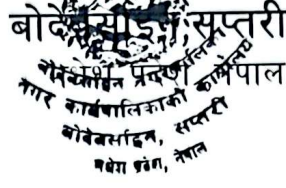 बोदेबर्साईन, सप्तरी
मधेश प्रदेश, नेपाल
नगर कार्यपालिकाको कार्यालय
बोदेबर्साइन, सप्तरी
मधेश प्रदेश, नेपाल